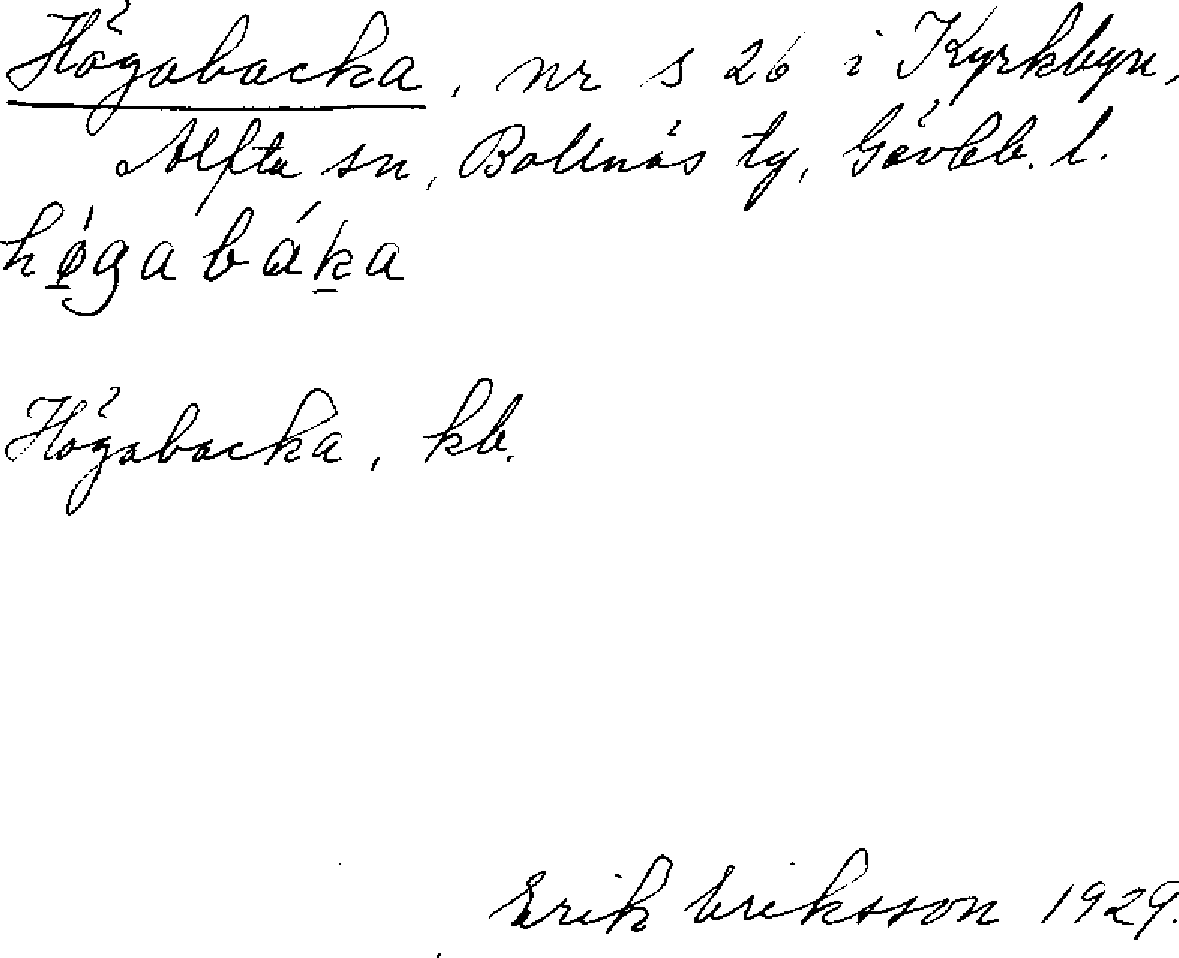 Högabacka, nr s 26 i Kyrkbyn,
Alfta sn, Bollnäs tg, Gävleb. l.
hǿ̱gabáḵa
Högabacka, kb.
Erik Eriksson 1929.